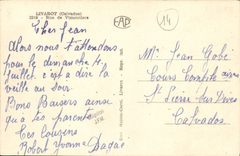 LIVAROT (Calvados)
Rue de Vimoutiers
FAP
14
Cher Jean
Alors nous t'attendons
pour le dimanche 4
Juillet c'est a dire la
veille au soir
Bons Baisers ainsi
qu'a tes parents
Tes Cousins
Robert Yvonne
Mr Jean Gobé
Cours Complémentaire
St Pierre sur Dives
Calvados